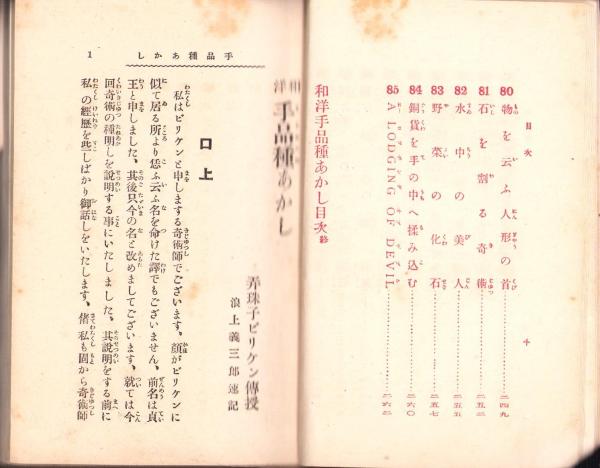 目次
十
80 物を云ふ人形の首……二四九
81 石を割る奇術……二五二
82 水中の美人……二五五
83 野菜の化石……二五七
84 銅貨を手の中へ揉み込む……二六〇
85 A LODGING OF DEVIL……二六二
和洋手品種あかし目次終
手品種あかし
1
手品種あかし
弄珠子ビリケン傳授
浪上義三郎速記
口上
私はビリケンと申しまする奇術師でございます、顔がビリケンに
似て居る所より恁ふ云ふ名を命けた譯でもございません、前名は貞
王と申しました、其後只今の名と改めましてございます、就ては今
回奇術の種明しを説明する事にいたしました、其説明をする前に
私の經歴を些しばかり御話しをいたします、偖私も固から奇術師